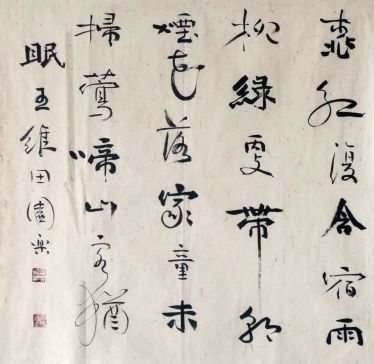 桃红復含宿雨
柳綠更帶朝
煙花落家童未
掃鶯啼山客猶
眠王維田園楽